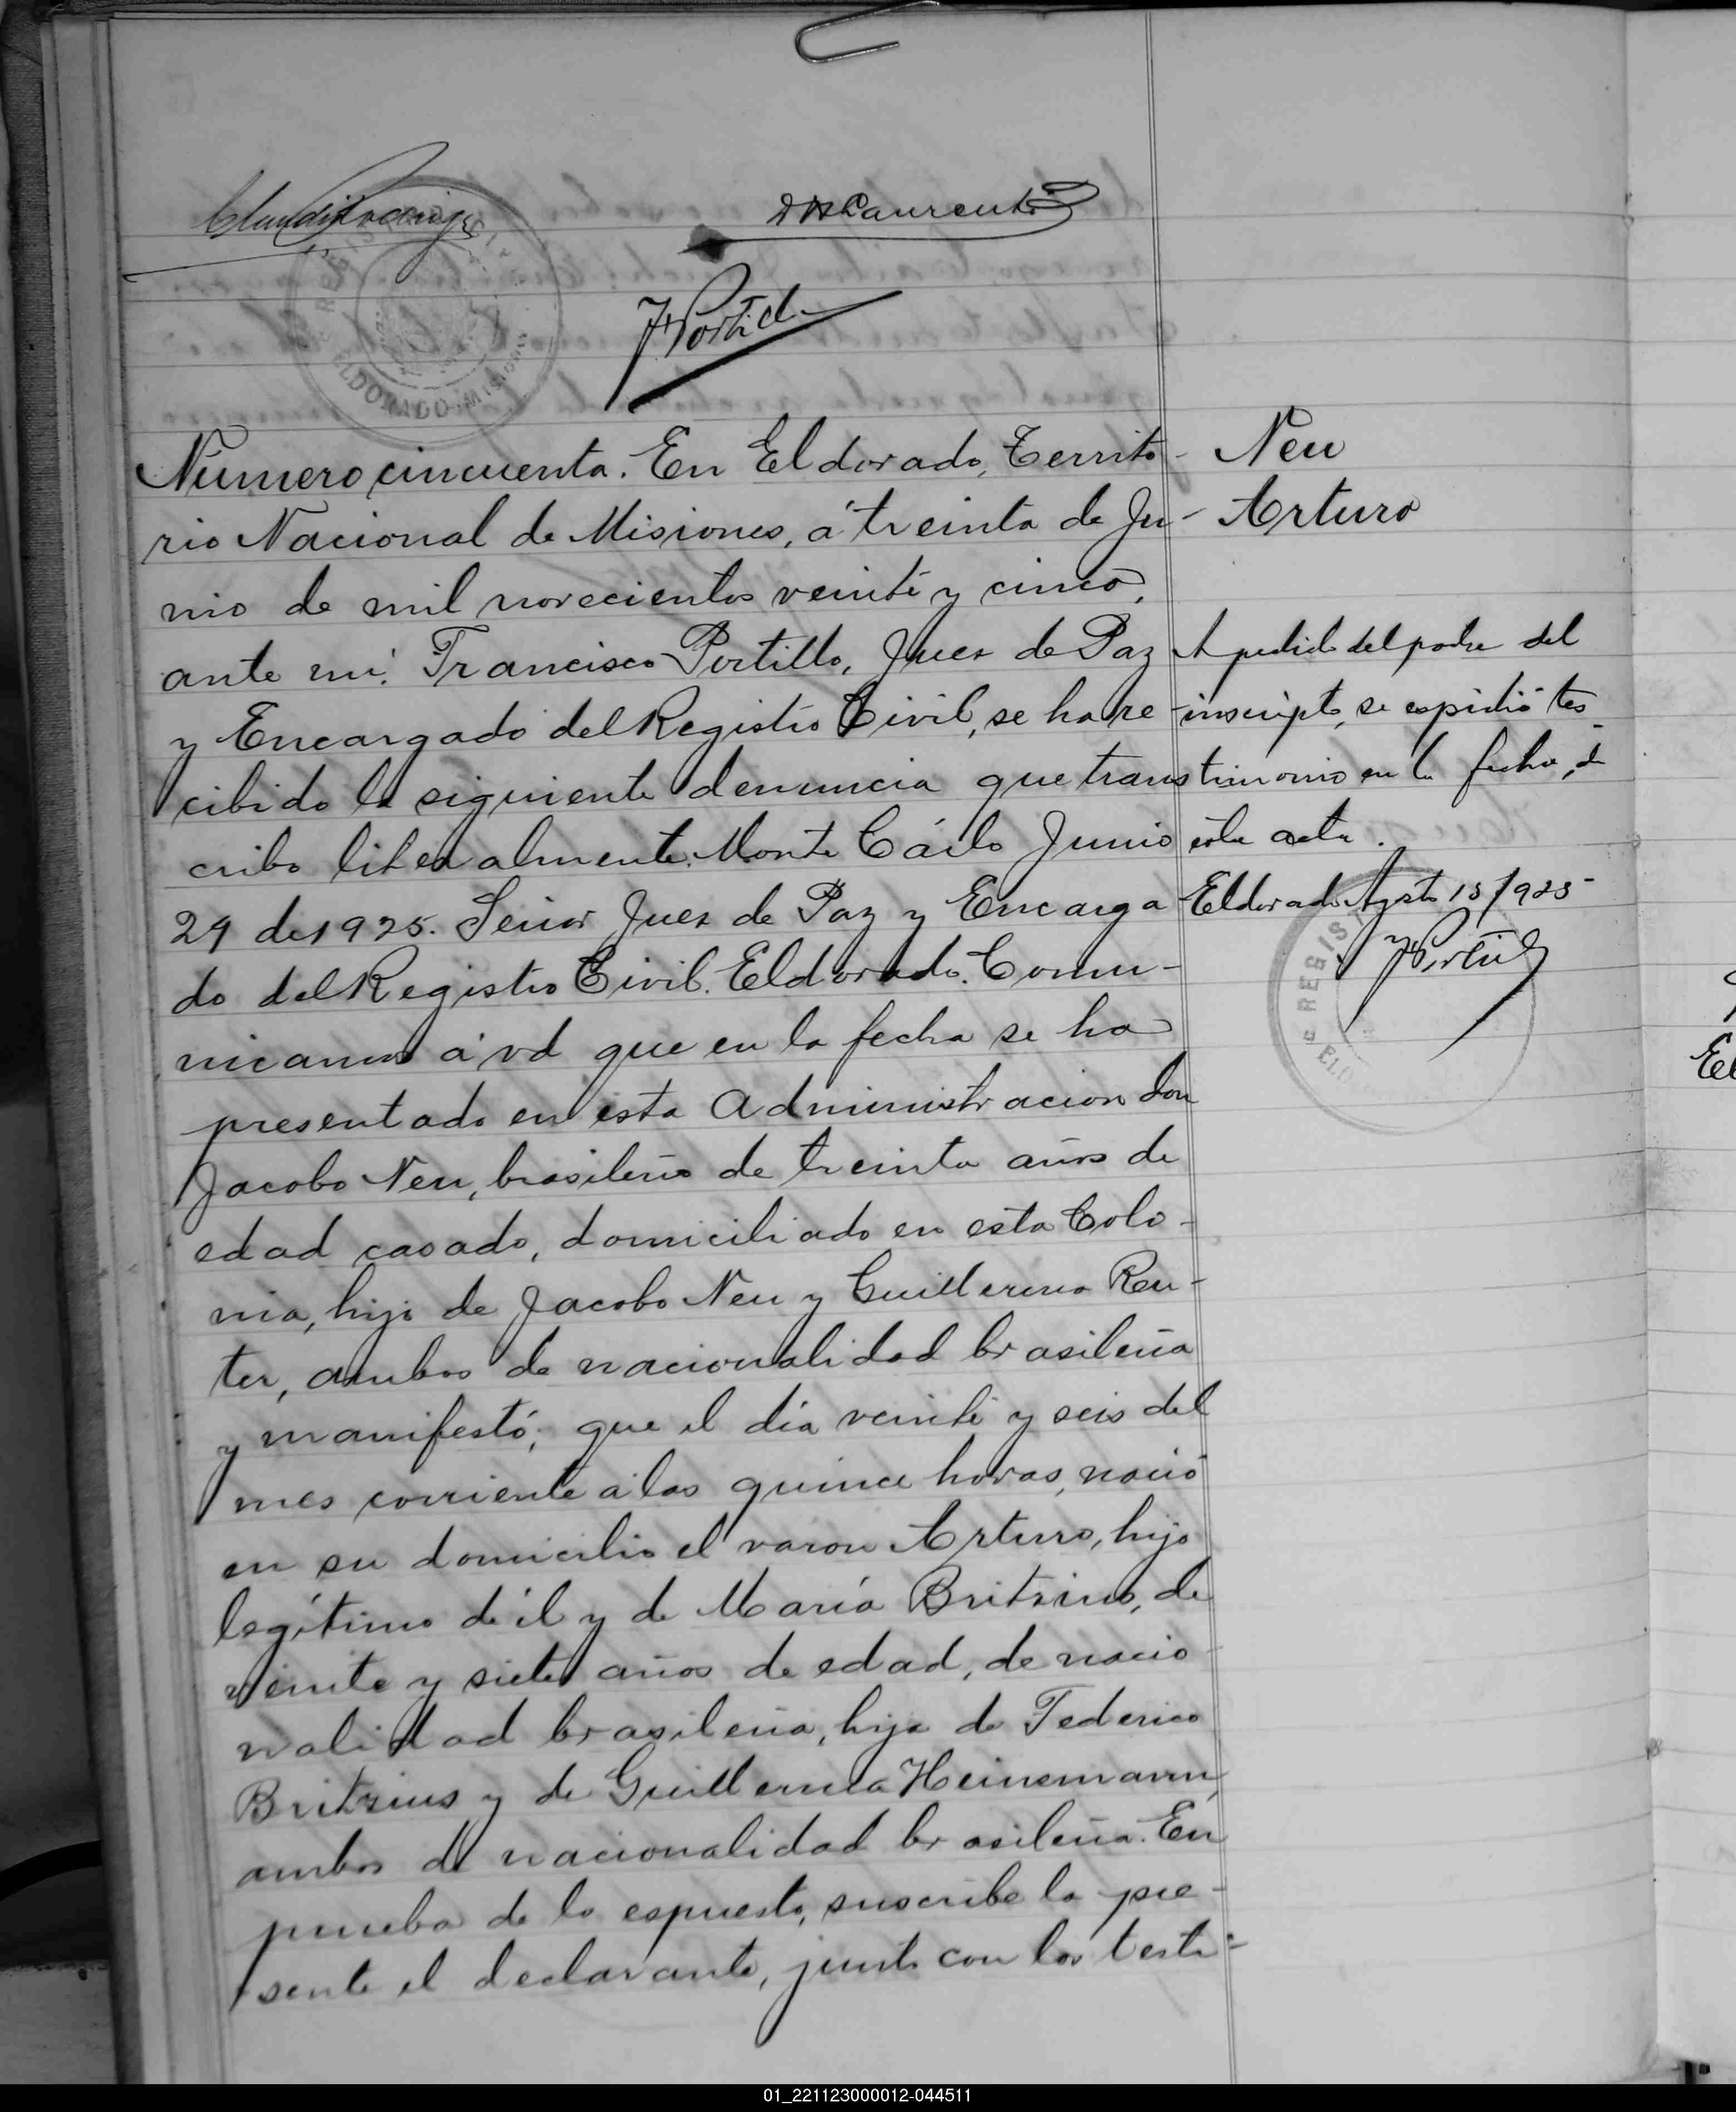 REGIS
ELDORADO-MISIONES
Número cincuenta. En Eldorado, Territo-
rio Nacional de Misiones, á treinta de Ju-
nio de mil novecientos veinte y cinco,
ante mi: Francisco Portillo, Juez de Paz
y Encargado del Registro Civil, se ha re-
cibido la siguiente denuncia que trans
cribo literalmente. Monte Cárlo Junio
29 de 1925. Señor Juez de Paz y Encarga
do del Registro Civil. Eldorado. Comu-
nicamos á vd que en la fecha se ha
presentado en esta Administracion don
Jacobo Neu, brasileño de treinta años de
edad casado, domiciliado en esta Colo-
nia, hijo de Jacobo Neu y Guillermina Reu-
ter, ambos de nacionalidad brasileña
y manifestó; que el día veinte y seis del
mes corriente á las quince horas, nació
en su domicilio el varon Arturo, hijo
legítimo de él y de María Britzius, de
veinte y siete años de edad, de nacio
nalidad brasileña, hija de Federico
Britzius y de Guillermina Heinemann,
ambos de nacionalidad brasileña. En
prueba de lo espuesto, suscribe la pre-
sente el declarante, junto con los testi-
Neu
Arturo
A pedido del padre del
inscripto, se espidió tes-
timonio en la fecha, de
esta acta.
Eldorado Agosto 15/925
REGIS
ELD
El
01_221123000012-044511